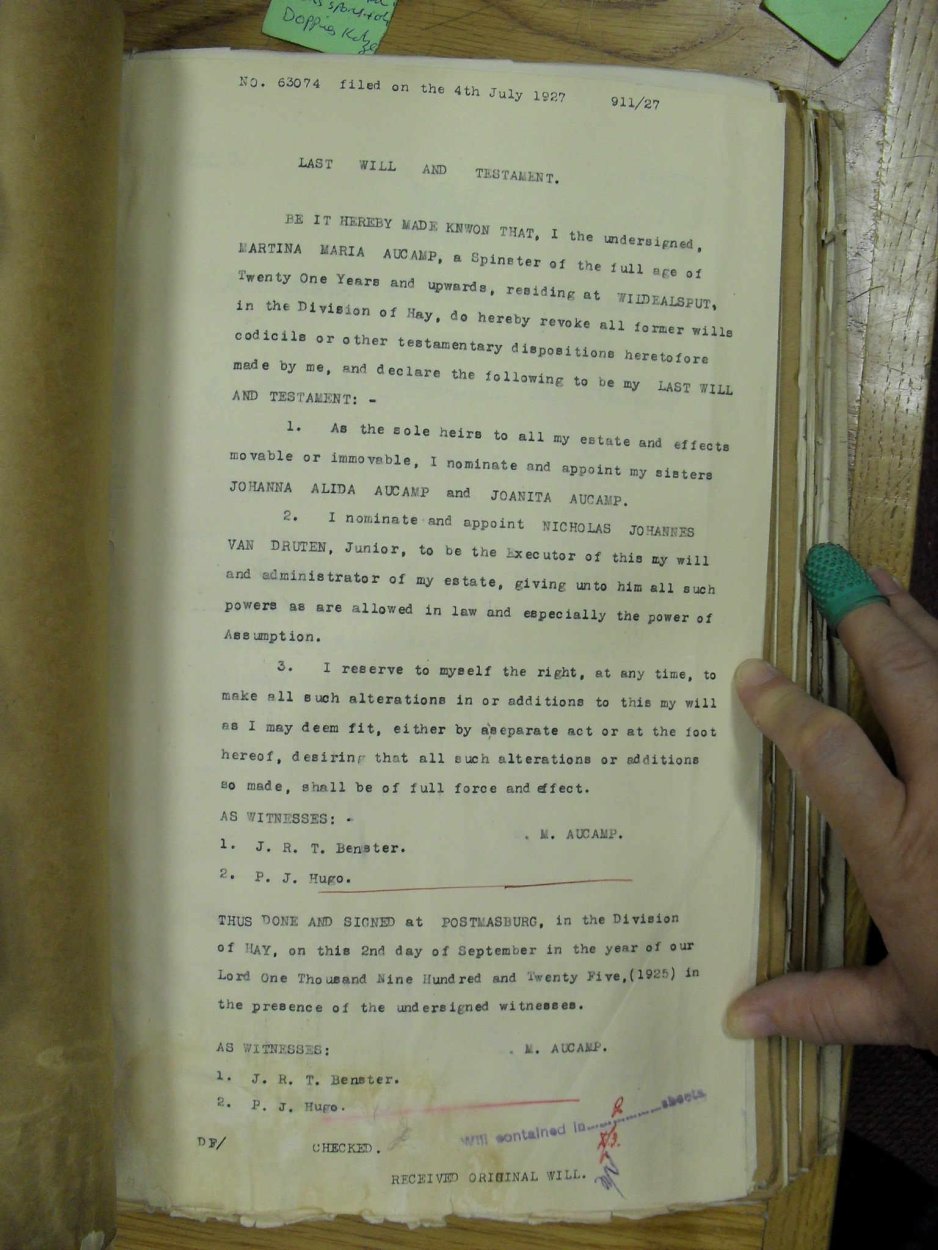 Doppies Kat
No. 63074 filed on the 4th July 1927 911/27
LAST WILL AND TESTAMENT.
BE IT HEREBY MADE KNWON THAT, I the undersigned,
MARTINA MARIA AUCAMP, a Spinster of the full age of
Twenty One Years and upwards, residing at WILDEALSPUT,
in the Division of Hay, do hereby revoke all former wills
codicils or other testamentary dispositions heretofore
made by me, and declare the following to be my LAST WILL
AND TESTAMENT: -
1. As the sole heirs to all my estate and effects
movable or immovable, I nominate and appoint my sisters
JOHANNA ALIDA AUCAMP and JOANITA AUCAMP.
2. I nominate and appoint NICHOLAS JOHANNES
VAN DRUTEN, Junior, to be the Executor of this my will
and administrator of my estate, giving unto him all such
powers as are allowed in law and especially the power of
Assumption.
3. I reserve to myself the right, at any time, to
make all such alterations in or additions to this my will
as I may deem fit, either by aseparate act or at the foot
hereof, desiring that all such alterations or additions
so made, shall be of full force and effect.
AS WITNESSES: -
. M. AUCAMP.
1. J. R. T. Benster.
2. P. J. Hugo.
THUS DONE AND SIGNED at POSTMASBURG, in the Division
of HAY, on this 2nd day of September in the year of our
Lord One Thousand Nine Hundred and Twenty Five,(1925) in
the presence of the undersigned witnesses.
AS WITNESSES: . M. AUCAMP.
1. J. R. T. Benster.
2. P. J. Hugo.
Will contained in..................sheets
DF/ CHECKED.
RECEIVED ORIGINAL WILL.